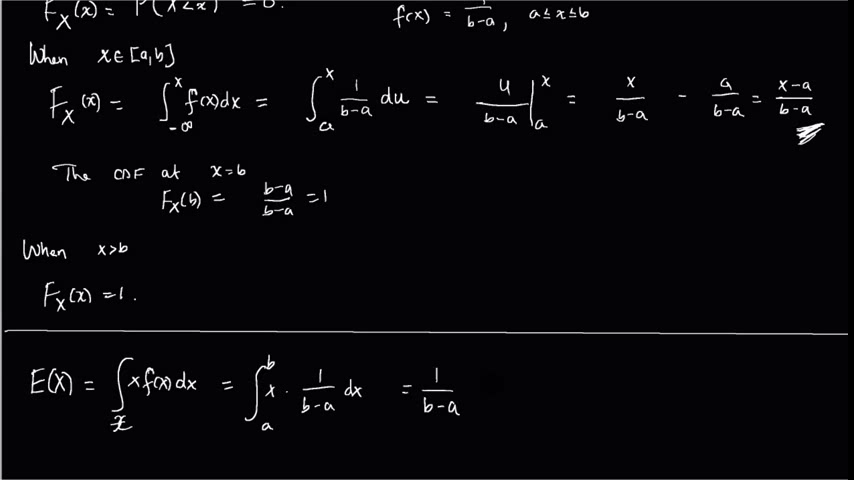 F_X(x) = P(X<x) = 0.
f(x) = 1/(b-a), a≤x≤b
When x∈[a,b]
F_X(x) = ∫_{-∞}^{x} f(x)dx = ∫_{a}^{x} 1/(b-a) du = u/(b-a) |_{a}^{x} = x/(b-a) - a/(b-a) = (x-a)/(b-a)
The CDF at x=b
F_X(b) = (b-a)/(b-a) = 1
When x>b
F_X(x) = 1.
E(X) = ∫_{x} x f(x) dx = ∫_{a}^{b} x · 1/(b-a) dx = 1/(b-a)